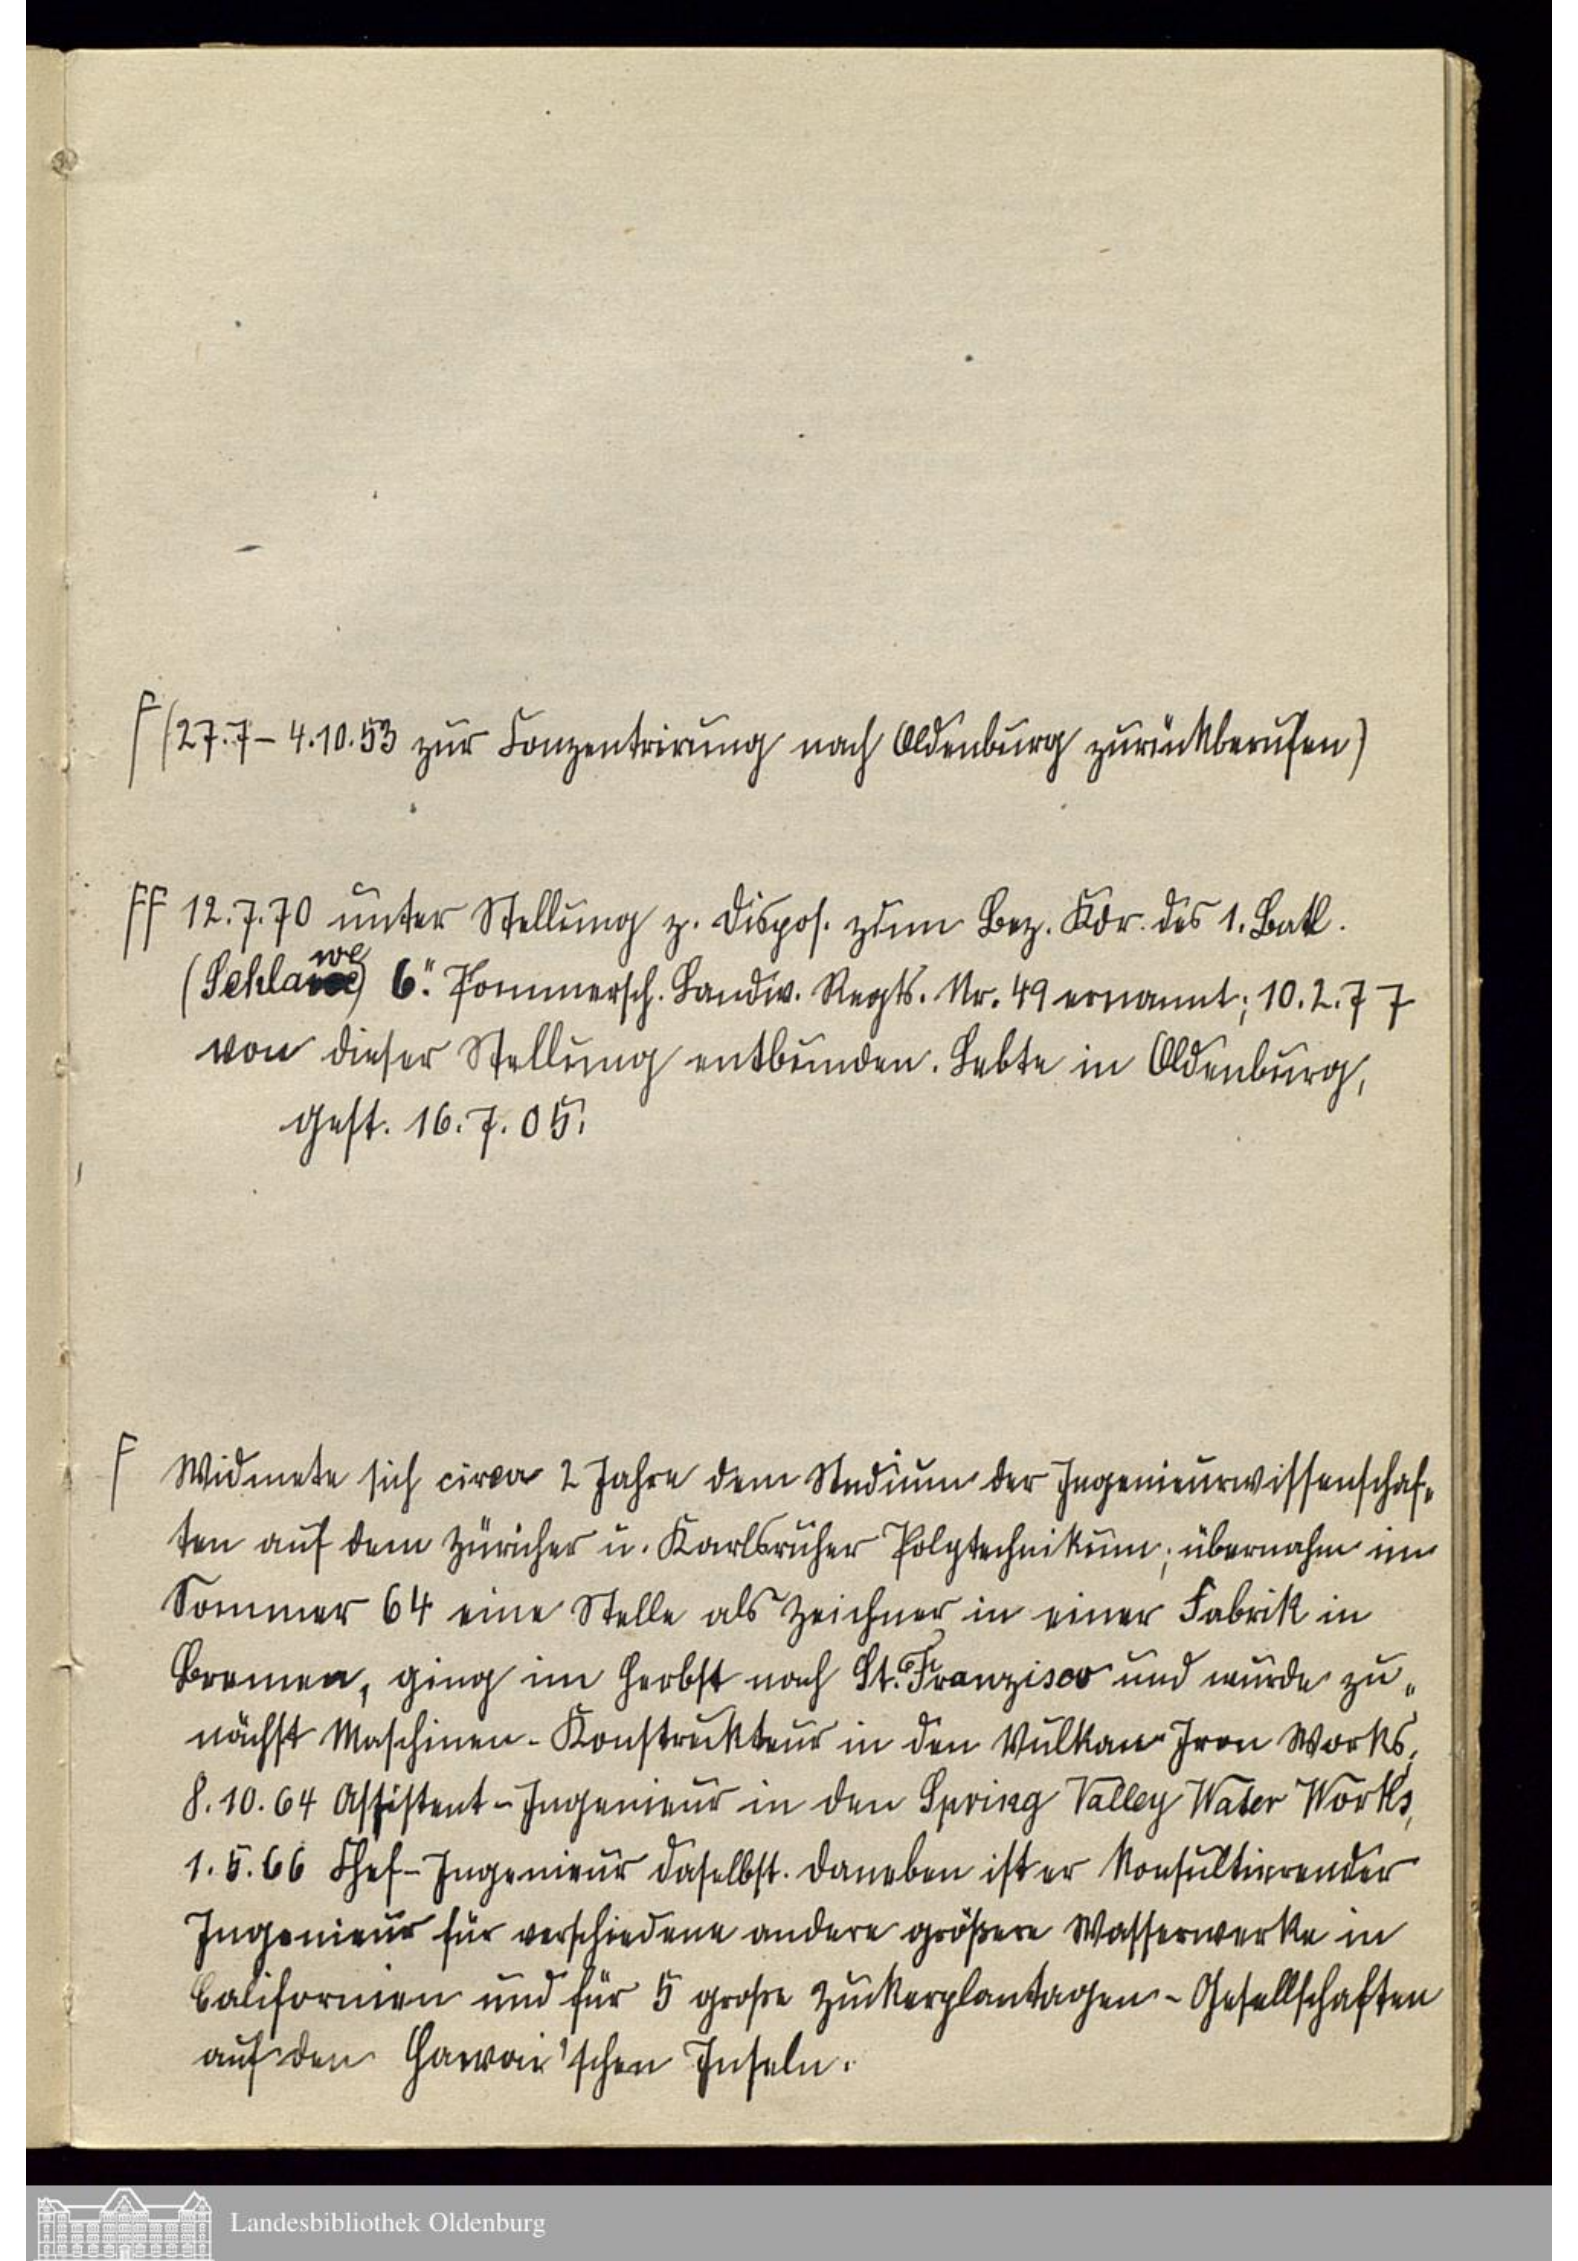 F (27.7 – 4.10.53 zur Conzentrirung nach Oldenburg zurückberufen)
FF 12.7.70 unter Stellung z. Dispos. zum Bez. Kdr. des 1. Batl.
(Schlawe) 6. Pommersch. Landw. Regts. Nr. 49 ernannt; 10.2.77
von dieser Stellung entbunden. Lebte in Oldenburg,
gest. 16.7.05.
F Widmete sich circa 2 Jahre dem Studium der Ingenieurwissenschaf-
ten auf dem Züricher u. Karlsruher Polytechnikum; übernahm im
Sommer 64 eine Stelle als Zeichner in einer Fabrik in
Bremen, ging im Herbst nach St. Franzisco und wurde zu-
nächst Maschinen-Konstrukteur in den Vulkan-Iron Works,
8.10.64 Assistent-Ingenieur in den Spring Valley Water Works,
1.5.66 Chef-Ingenieur daselbst. Daneben ist er konsultierender
Ingenieur für verschiedene andere größere Wasserwerke in
Californien und für 5 große Zuckerplantagen-Gesellschaften
auf den Hawai'schen Inseln.
Landesbibliothek Oldenburg